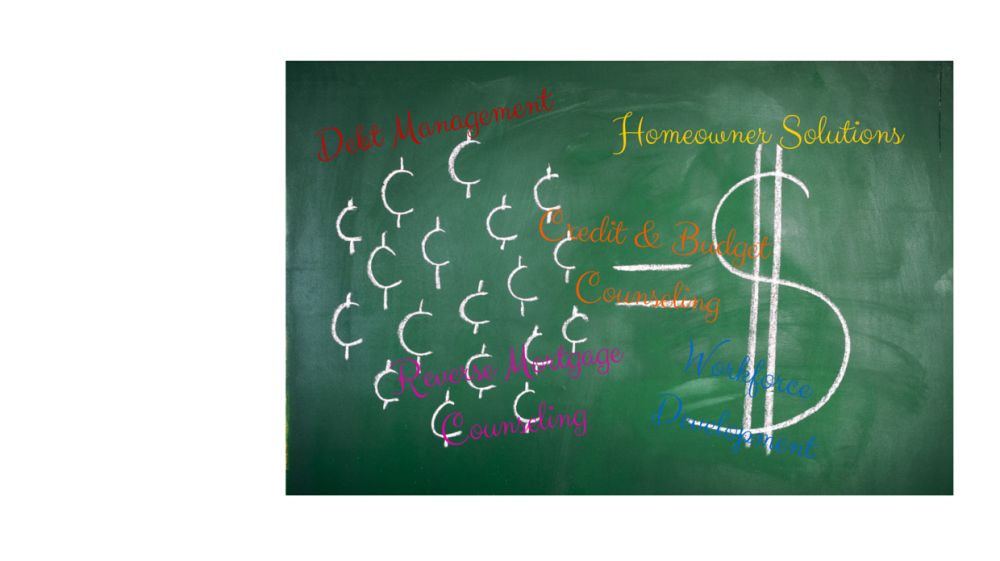 Debt Management
Homeowner Solutions
Credit & Budget
Counseling
Reverse Mortgage
Counseling
Workforce
Development
¢ ¢ ¢ ¢ ¢ ¢ ¢ ¢ ¢ ¢ ¢ ¢ ¢ ¢ ¢ ¢ ¢ ¢ = $